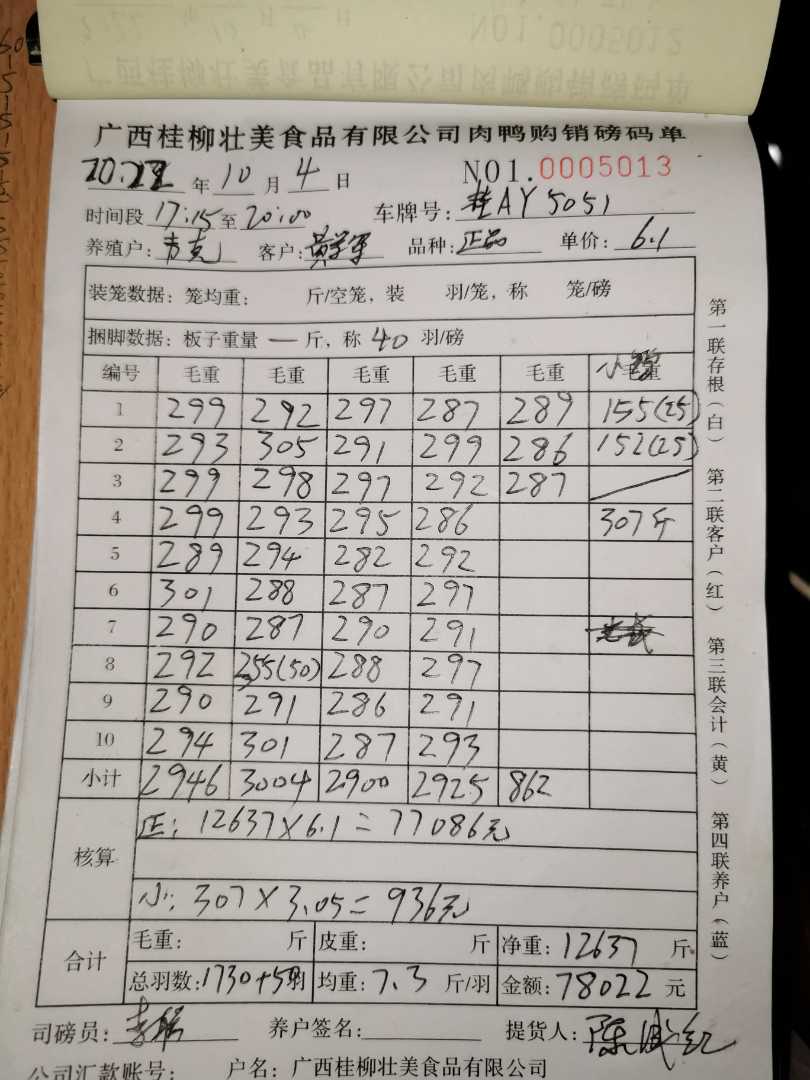 广西桂柳壮美食品有限公司肉鸭购销磅码单
2022年10月4日 NO1.0005013
时间段17:15至20:00 车牌号:桂AY5051
养殖户:韦克 客户:黄学军 品种:正品 单价:6.1
装笼数据:笼均重: 斤/空笼,装 羽/笼,称 笼/磅
捆脚数据:板子重量一斤,称40羽/磅
编号 毛重 毛重 毛重 毛重 毛重 小
1 299 292 297 287 289 155(25)
2 293 305 291 299 286 152(25)
3 299 298 297 292 287
4 299 293 295 286 307斤
5 289 294 282 292
6 301 288 287 297
7 290 287 290 291
8 292 355(50) 288 297
9 290 291 286 291
10 294 301 287 293
小计 2946 3004 2900 2925 862
核算
正:12637×6.1=77086元
小:307×3.05=936元
合计
毛重: 斤 皮重: 斤 净重:12637斤
总羽数:1730+50羽 均重:7.3斤/羽 金额:78022元
司磅员:李 养户签名: 提货人:陈
公司汇款账号: 户名:广西桂柳壮美食品有限公司
第一联存根(白) 第二联客户(红) 第三联会计(黄) 第四联养户(蓝)